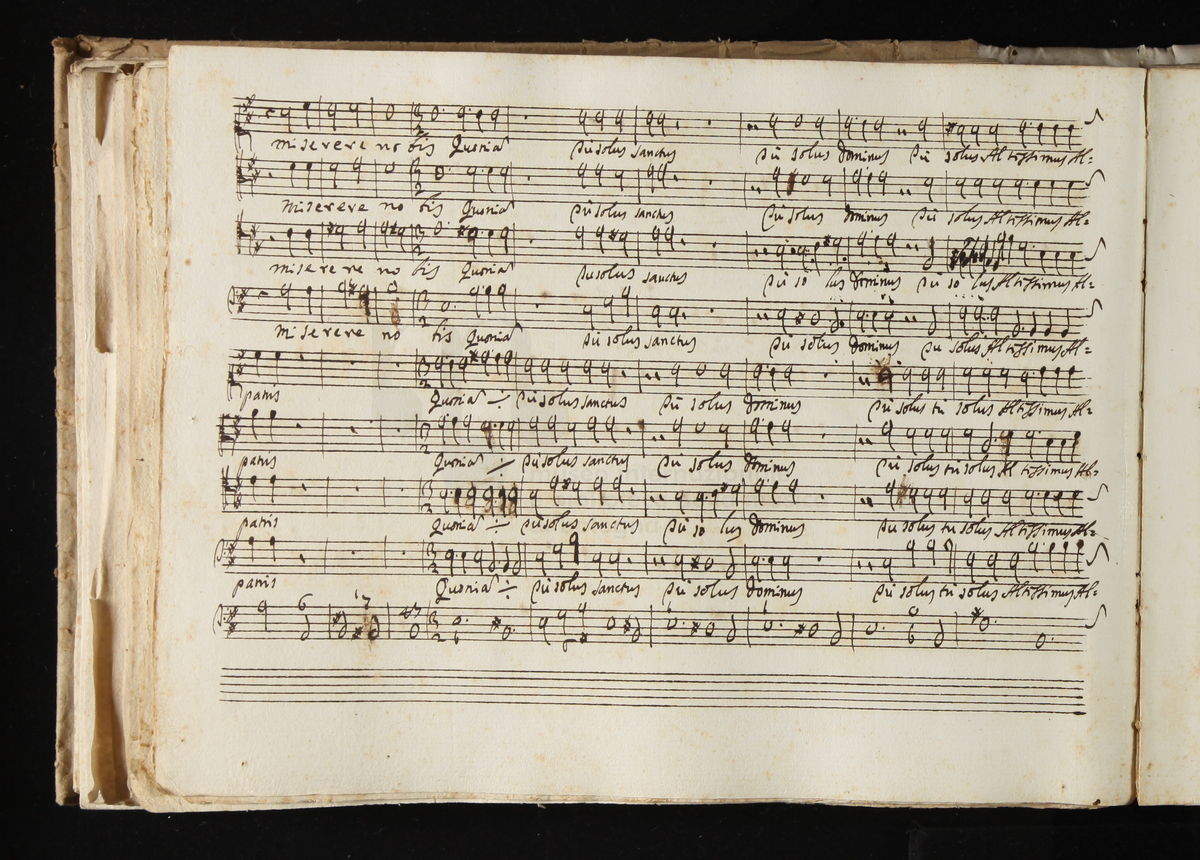 miserere no bis Quonia tu solus sanctus tu solus Dominus tu solus Altissimus Al=
miserere no bis Quonia tu solus sanctus tu solus Dominus tu solus Altissimus Al=
miserere no bis Quonia tu solus sanctus tu so lus Dominus tu so lus Altissimus Al=
miserere no bis Quonia tu solus sanctus tu solus Dominus tu solus Altissimus Al=
patris Quonia tu solus sanctus tu solus Dominus tu solus tu solus Altissimus Al=
patris Quonia tu solus sanctus tu solus Dominus tu solus tu solus Altissimus Al=
patris Quonia tu solus sanctus tu so lus Dominus tu solus tu solus Altissimus Al=
patris Quonia tu solus sanctus tu solus Dominus tu solus tu solus Altissimus Al=